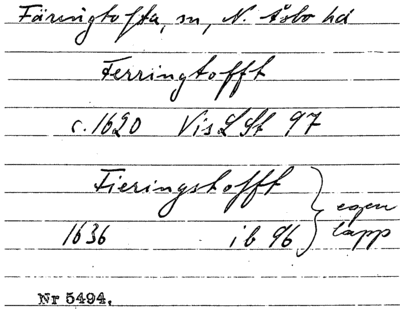 Färingtofta, sn, N. Åsbo hd
Ferringtofft
c. 1620 Vis L St 97
Fieringstofft
1636 ib 96
egen
lapp
Nr 5494.